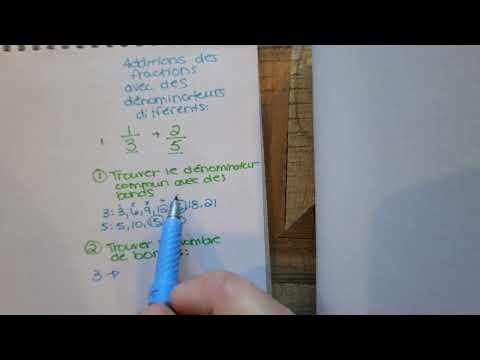 Additions des
fractions
avec des
dénominateurs
différents:
1/3 + 2/5
① Trouver le dénominateur
commun avec des
bonds
3: 3, 6, 9, 12, 18, 21
5: 5, 10, 15
② Trouver nombre
de
3 →